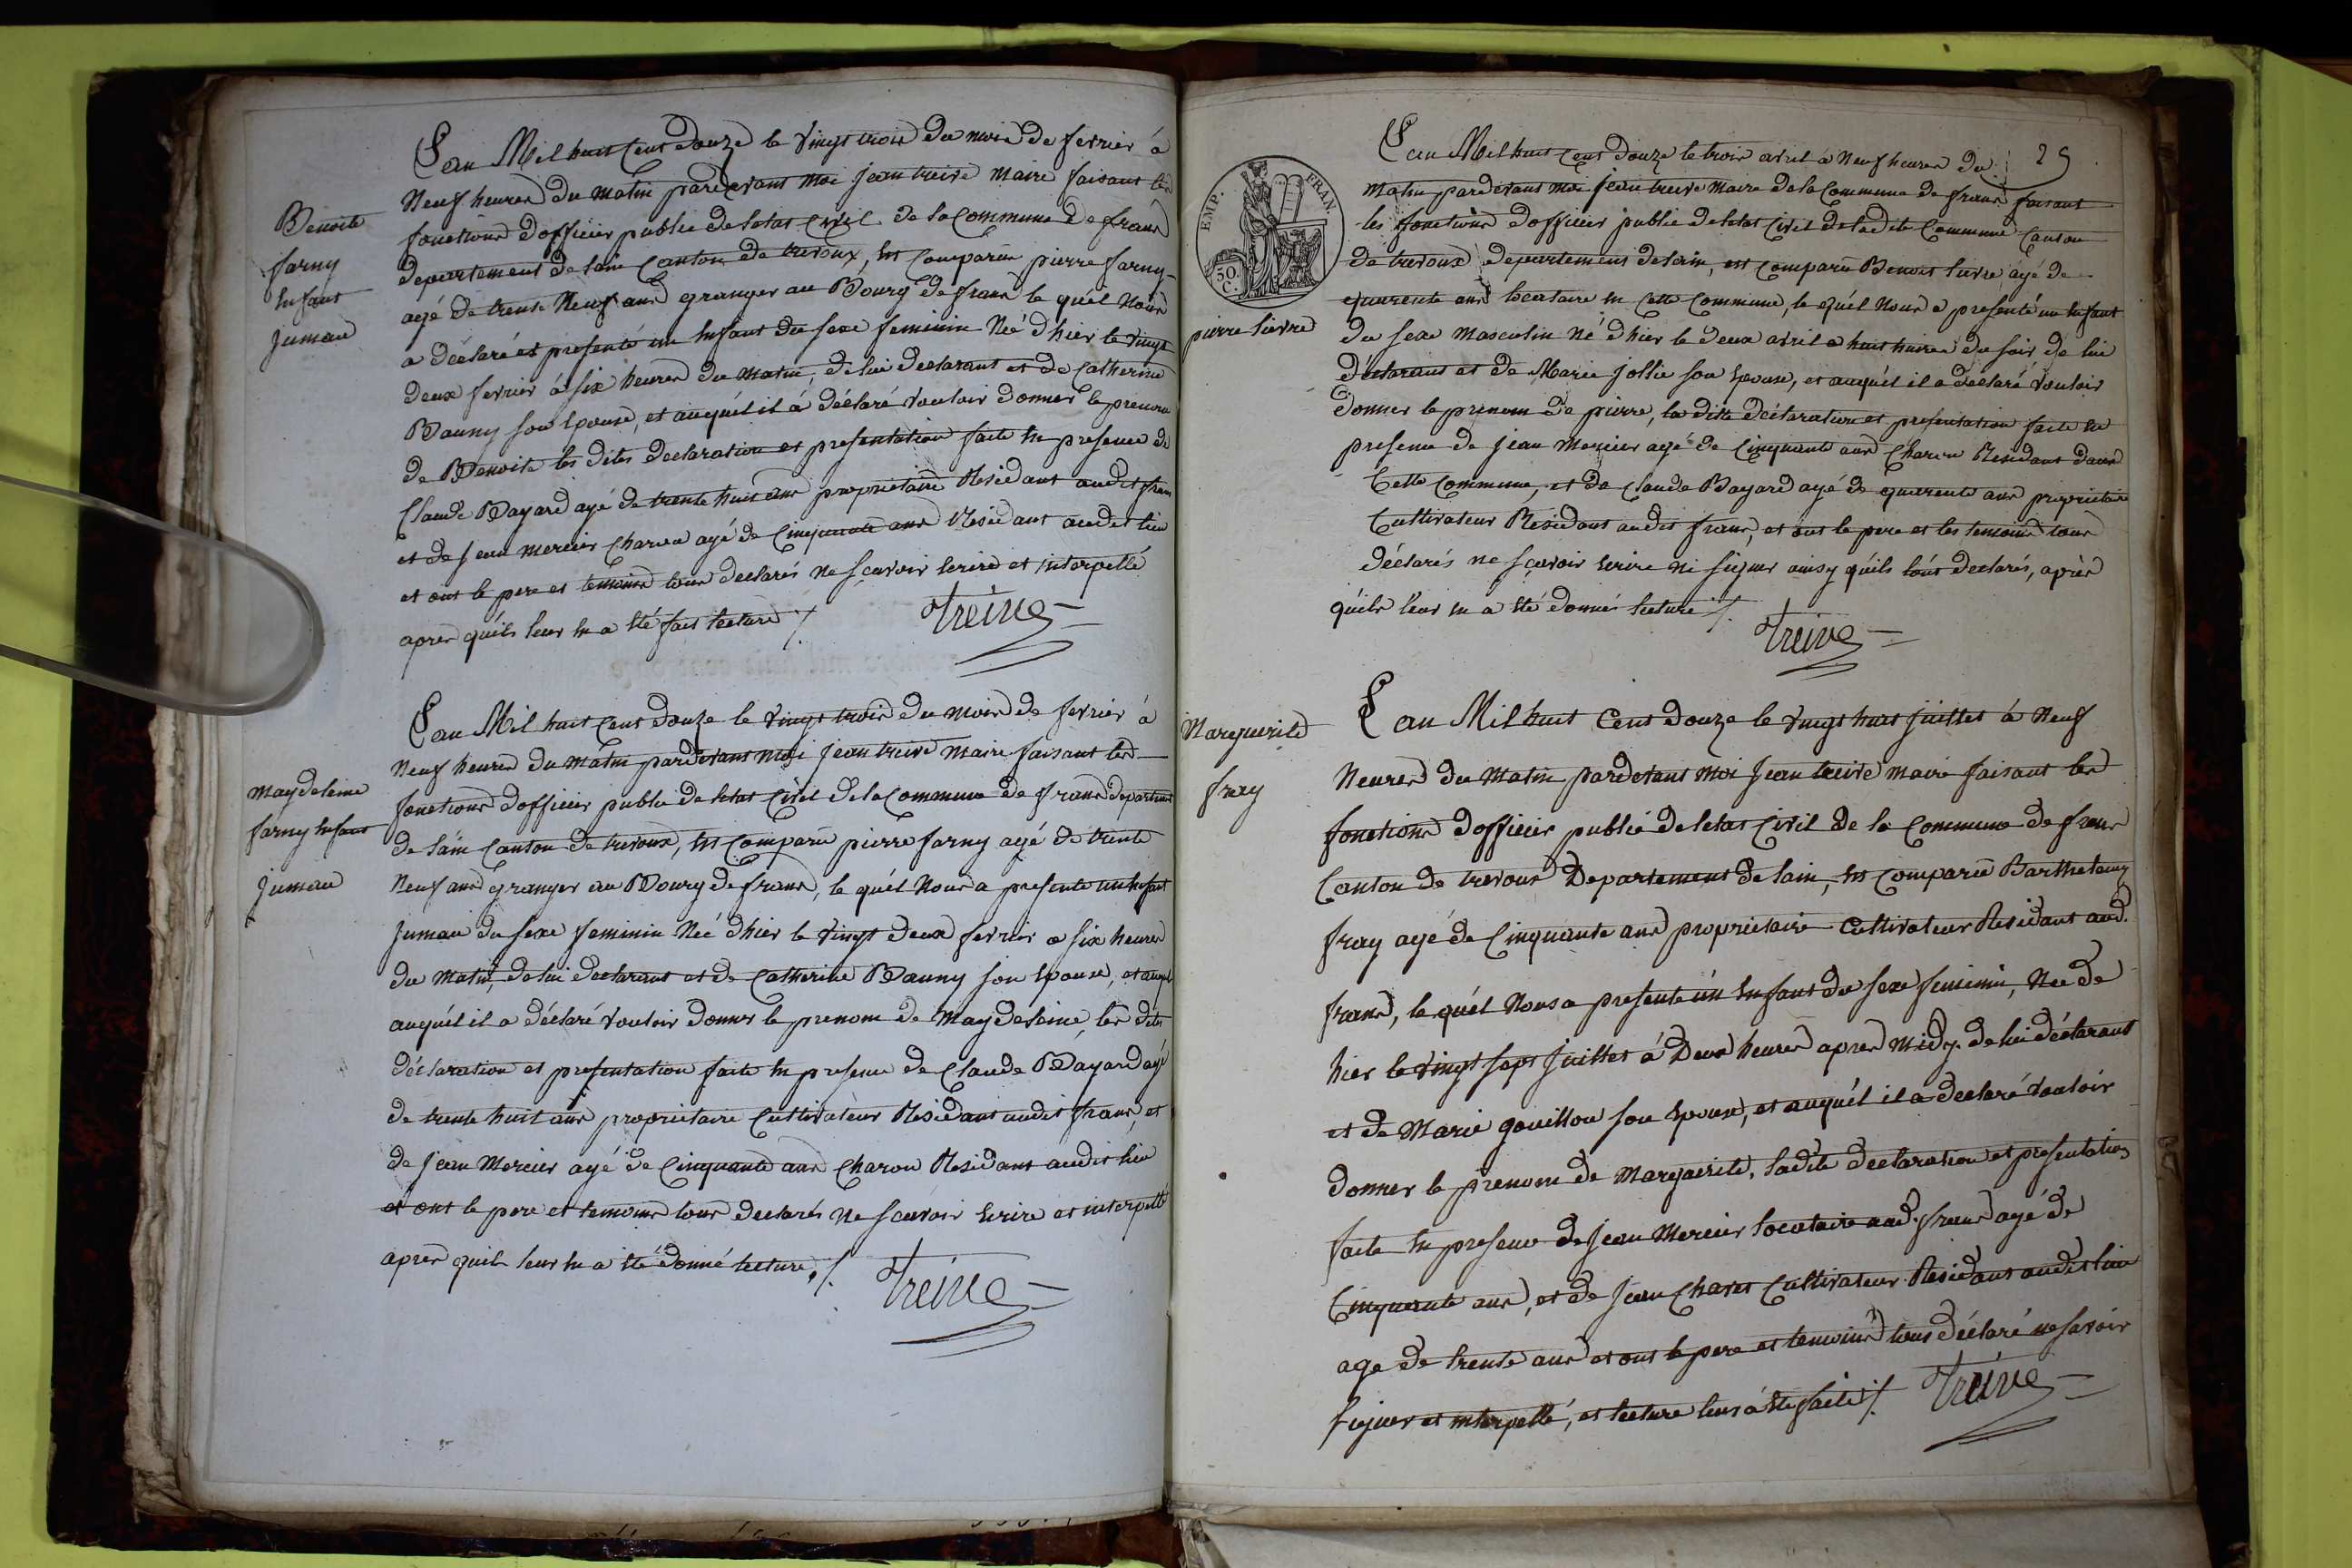 Benoite
farny
Enfant
jumau
L'an Mil huit Cent douze le vingt trois du mois de fevrier à
Neuf heures du matin pardevant moi jean treive maire faisant les
fonctions d'officier public de letat Civil de la Commune de frans
departement de lain Canton de trevoux, Est Comparu pierre farny
agé de trente Neuf ans granger au Bourg de frans le quél Nous
a déclaré et presenté un Enfant du sexe feminin Né d'hier le vingt
deux fevrier à six heures du matin, de lui declarant et de Catherine
Bauny son Epouse, et auquél il à déclaré vouloir donner le prenom
de Benoite les dites declaration et presentation faite En presence de
Claude Bayard agé de trente huit ans proprietaire Residant audit frans
et de jean mercier Charon agé de Cinquante ans Residant audit lieu
et ont le pere et temoins tous declarés ne sçavoir Ecrire et interpellé
apres quéils leur En a Eté fait lecture /.
Treive
magdeleine
farny Enfant
jumau
L'an Mil huit Cent douze le vingt trois du mois de fevrier à
Neuf heures du matin pardevant moi jean treive maire faisant les
fonctions d'officier public de letat Civil de la Commune de frans departement
de l'ain Canton de trevoux, Est Comparu pierre farny agé de trente
Neuf ans granger au Bourg de frans, le quél Nous a presenté un Enfant
jumau du sexe feminin Né d'hier le vingt deux fevrier a six heures
du matin, de lui declarant et de Catherine Bauny son Epouse, et
auquél il a déclaré vouloir donner le prenom de magdeleine, les dites
déclaration et presentation faite En presence de Claude Bayard agé
de trente huit ans proprietaire Cultivateur Residant audit frans, et
de jean mercier agé de Cinquante ans Charon Residant audit lieu
et ont le pere et temoins tous declarés ne sçavoir Ecrire et interpellé
apres quils leur En a Eté donné lecture, /.
Treive
25
EMP. FRAN.
50. C.
pierre lievre
L'an Mil huit Cent douze le trois avril à Neuf heures du
matin pardevant moi jean treive maire de la Commune de frans faisant
les fonctions d'officier public de letat Civil de ladite Commune Canton
de trevoux departement de lain, est comparu Benoit lievre agé de
quarente ans locataire En Cette Commune, le quél Nous a presenté un Enfant
du sexe masculin Né d'hier le deux avril a huit heures du soir de lui
déclarant et de Marie jollie son Epouse, et auquél il a déclaré vouloir
donner le prenom de pierre, la ditte déclaration et presentation faite En
presence de jean mercier agé de Cinquante ans Charon Residant dans
Cette Commune, et de Claude Bayard agé de quarente ans proprietaire
Cultivateur Residant audit frans, et ont le pere et les temoins tous
déclarés ne sçavoir Ecrire ni signer ainsy quéils l'ont declarés, aprés
quéils leur En a Eté donnés lecture /.
Treive
Marguerite
fray
L'an Mil huit Cent douze le vingt huit juillet à Neuf
heures du matin pardevant moi jean treive maire faisant les
fonctions d'officier public de letat Civil de la Commune de frans
Canton de trevoux Departement de lain, Est Comparu Barthelemy
fray agé de Cinquante ans proprietaire Cultivateur Residant aud.
frans, le quél Nous a presenté un Enfant du sexe feminin, Né de
hier le vingt sept juillet à Deux heures apres midy. de lui déclarant
et de Marie gouillon son Epouse, et auquél il a declaré vouloir
donner le prenom de marguerite, ladite declaration et presentation
faite En presence de jean mercier locataire aud. frans agé de
Cinquante ans, et de jean Charet Cultivateur Residant audit lieu
age de trente ans et ont le pere et temoins tous déclaré ne savoir
signer et interpellé, et lecture leur à Eté faite /.
Treive